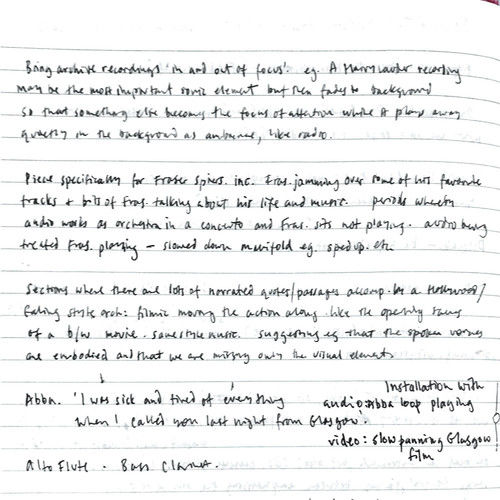 Bring archive recordings 'in and out of focus'. eg. A Harry Lauder recording
may be the most important sonic element but then fades to background
so that something else becomes the focus of attention while it plays away
quietly in the background as ambience, like radio.
Piece specifically for Fraser Spiers. inc. Fras. jamming over some of his favourite
tracks + bits of Fras. talking about his life and music. periods whereby
audio works as orchestra in a concerto and Fras. sits not playing. audio being
treated Fras. playing – slowed down manifold eg. sped up. etc
Sections where there are lots of narrated quotes/passages accomp. by a Hollywood/
Ealing style orch. filmic moving the action along. like the opening
of a b/w movie. same style music. suggesting eg that the spoken voices
are embodied and that we are missing only the visual element.
Abba. 'I was sick and tired of everything
when I called you last night from Glasgow'.
Installation with
audio: Abba loop playing
video: slow panning Glasgow
film
Alto Flute . Bass Clarinet.